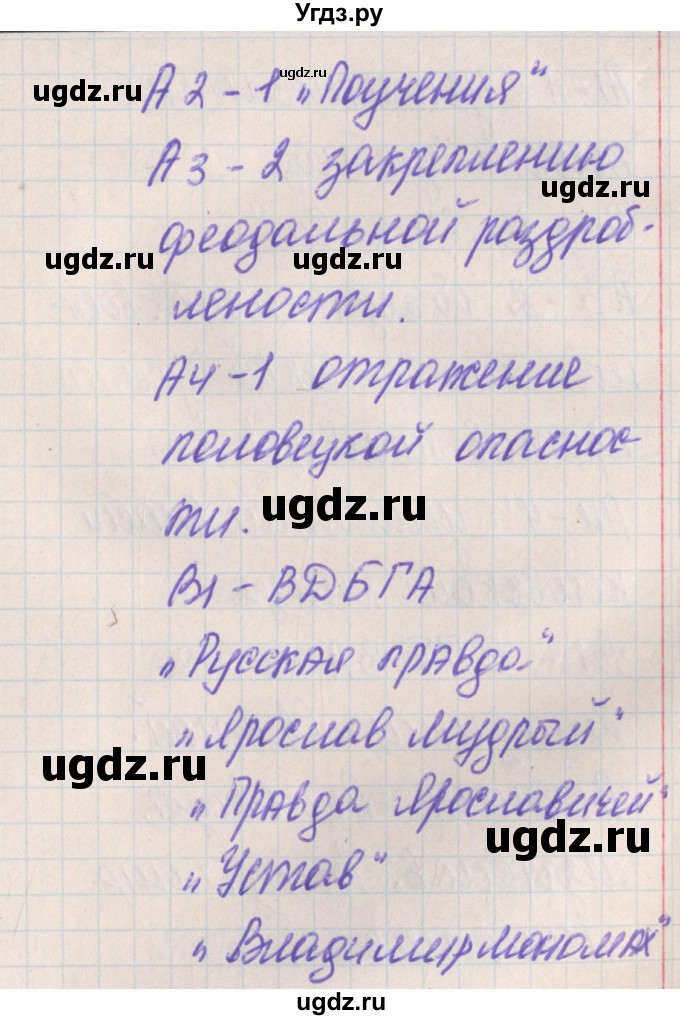 Угдз.ру
ugdz.ru
ugdz.ru
ugdz.ru
А2-1 „Поучения“
А3-2 закреплению
ugdz.ru
феодальной раздроб-
ugdz.ru
ugdz.ru
лености.
А4-1 отражение
половецкой опаснос-
ugdz.ru
ти.
В1-ВДБГА
„Русская правда“
„Ярослав Мудрый“
ugdz.ru
„Правда Ярославичей“
ugdz.ru
„Устав“
„Владимир Мономах“
ugdz.ru